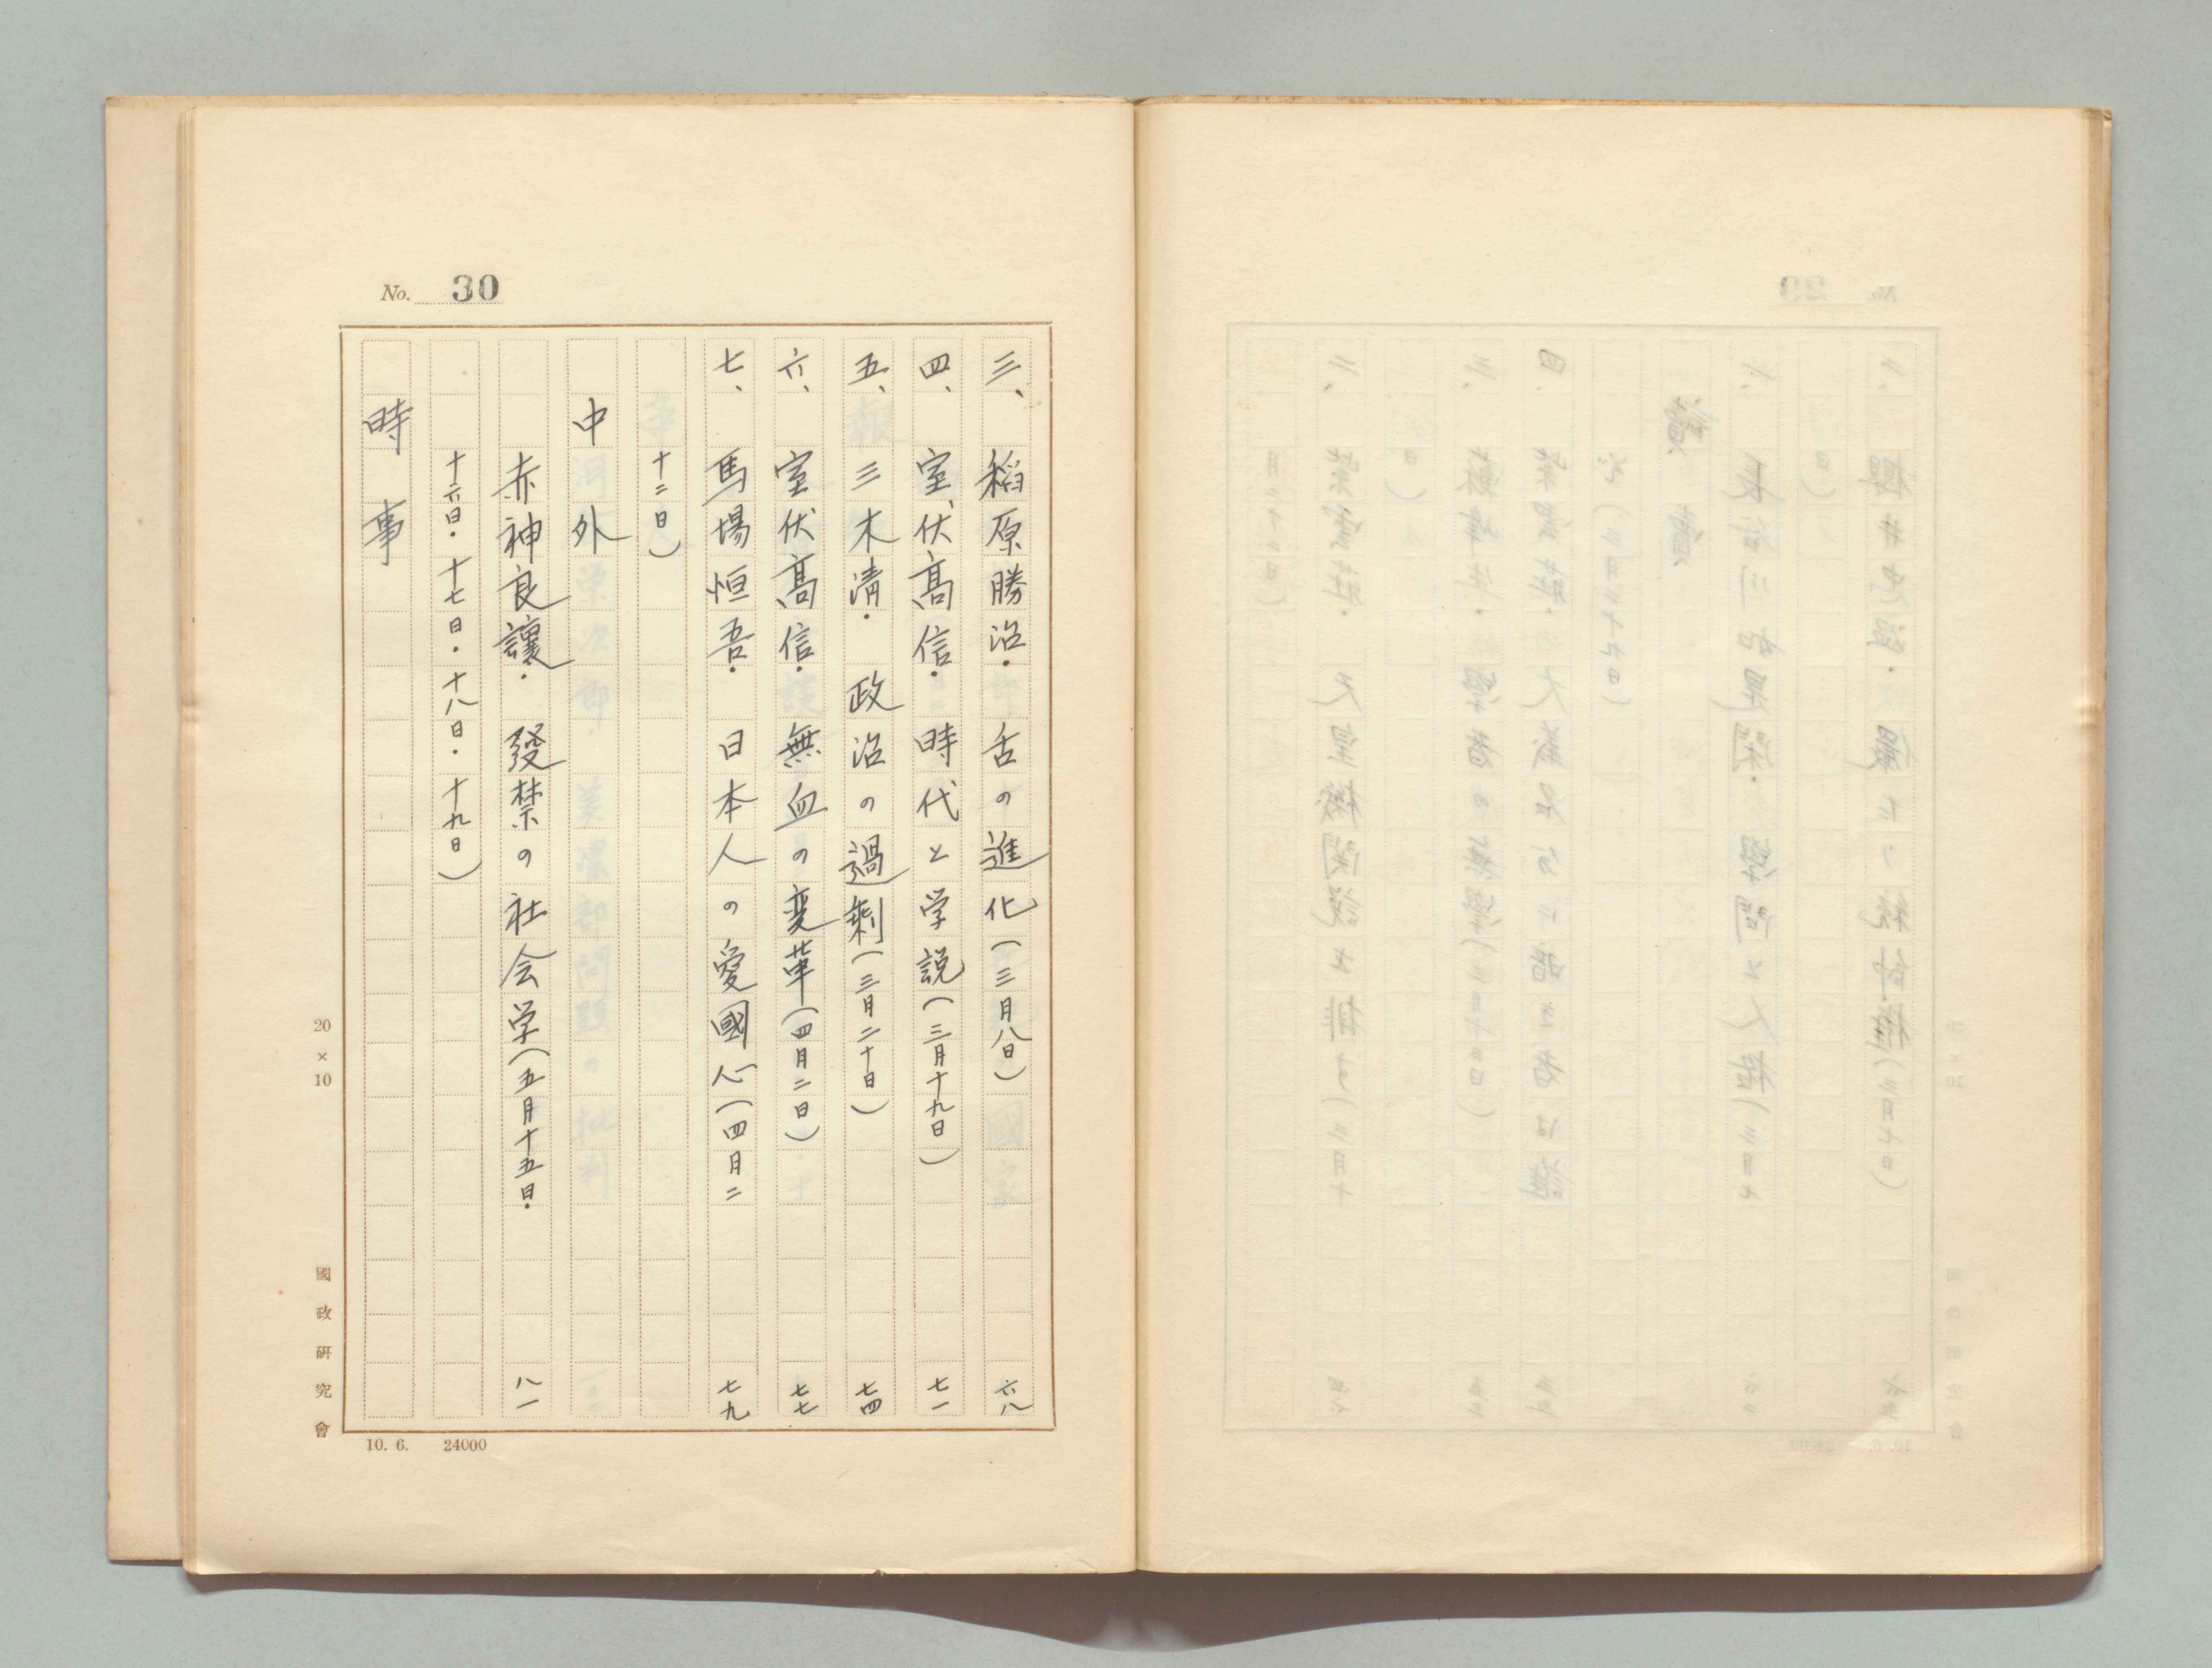 No. 30
三、稻原勝治・舌の進化(三月八日) 六八
四、室伏高信・時代と学説(三月十九日) 七一
五、三木清・政治の過剰(三月二十日) 七四
六、室伏高信・無血の変革(四月二日) 七七
七、馬場恒吾・日本人の愛國心(四月二 七九
十二日)
中外
赤神良讓・發禁の社会学(五月十五日・ 八一
十六日・十七日・十八日・十九日)
時事
20×10
國政研究會
10. 6. 24000